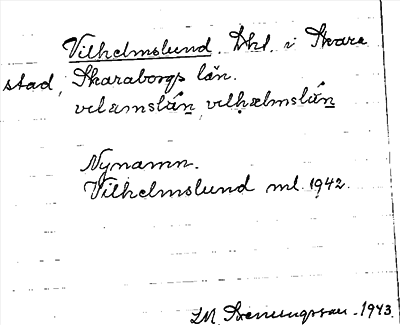 Vilhelmslund. Dhl. i Skara
stad, Skaraborgs län.
vilæmslún, vilhælmslún
Nynamn.
Vilhelmslund ml. 1942.
1943.